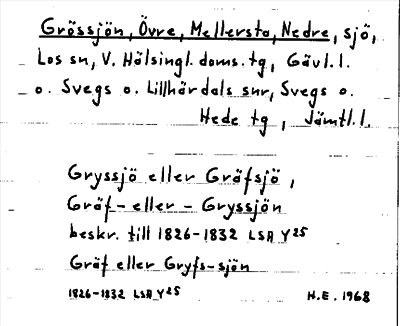 Grössjön, Övre, Mellersta, Nedre, sjö,
Los sn, V. Hälsingl. doms. tg, Gävl. l.
o. Svegs o. Lillhärdals snr, Svegs o.
Hede tg, Jämtl. l.
Gryssjö eller Gräfsjö,
Gräf- eller - Gryssjön
beskr. till 1826-1832 LSA Y25
Gräf eller Gryfs-sjön
1826-1832 LSA Y25
H.E. 1968